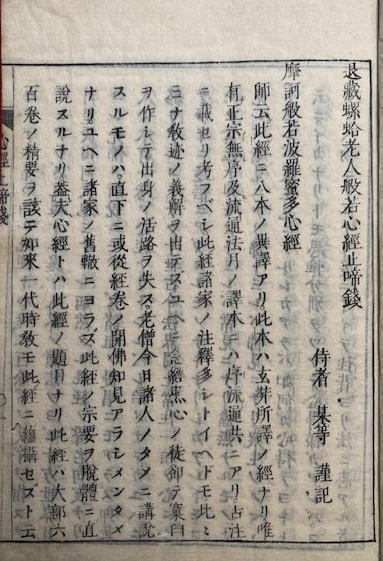 退藏螺蛤老人般若心經止啼錢
侍者 某等 謹記
摩訶般若波羅蜜多心經
師云此經ニ八本ノ異譯アリ此本ハ玄奘所譯ノ經ナリ唯
有正宗無序及流通法月ノ譯本ニハ序流通共ニアリ古注
ニ載セリ考フベシ此經諸家ノ注釋多シトイヘドモ此ミ
ミナ教迹ノ義解ヲ出デズユヘニ念經
ヲ作シテ出身ノ活路ヲ失ス老僧今日諸人ノタメニ講説
スルモノハ直下ニ或從經卷ノ開佛知見アラシメンタメ
ナリユヘニ諸家ノ舊轍ニヨラズ此經ノ宗要ヲ脫體ニ直
說スルナリ葢夫心經トハ此經ノ題目ナリ此經ハ大部六
百卷ノ精要ヲ該ニ如來一代時教モ此經ニ縕攝セズト云
心經止啼錢